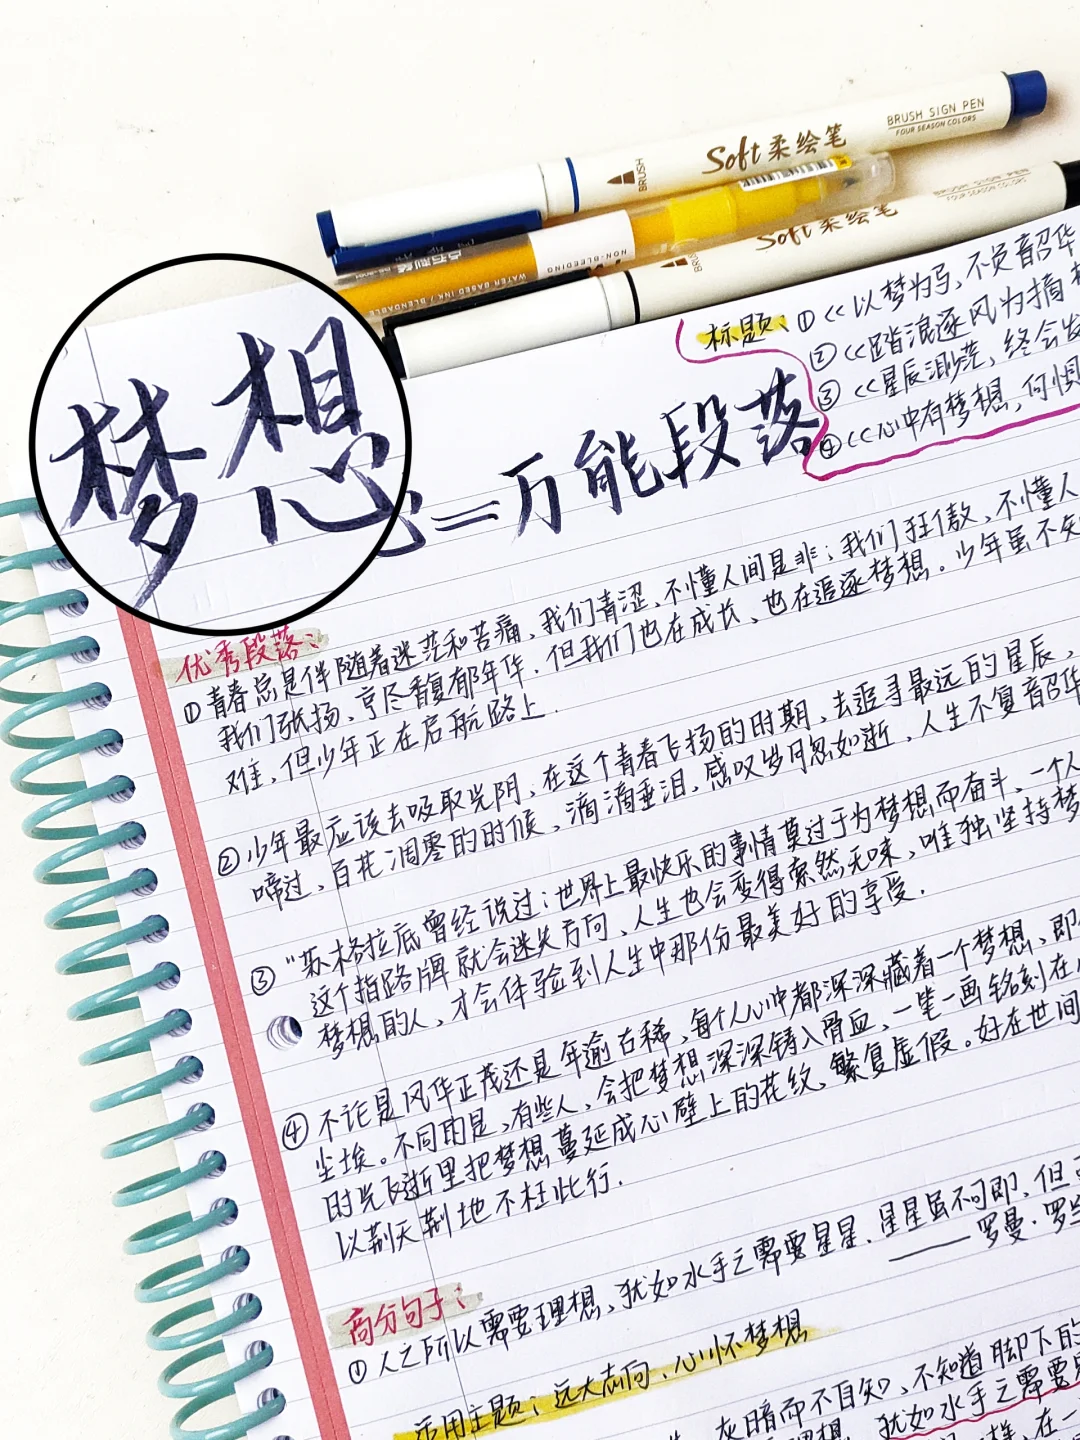 BRUSH SIGN PEN
FOUR SEASON COLORS
Soft 柔绘笔
BRUSH
NON-BLEEDING
WATER BASED INK / BLENDABLE
Soft 柔绘笔
标题:①<<以梦为马,不负韶华
②<<踏浪逐风为摘
③<<星辰渺茫,终会发
④<<心中有梦想,何惧
梦想=万能段落
优秀段落:
①青春总是伴随着迷茫和苦痛,我们青涩,不懂人间是非;我们狂傲,不懂人
我们张扬,享尽馥郁年华.但我们也在成长,也在追逐梦想。少年虽不知
难,但少年正在启航路上.
②少年最应该去吸取光阴,在这个青春飞扬的时期,去追寻最远的星辰,
啼过,百花凋零的时候,滴滴垂泪,感叹岁月忽如逝,人生不复韶华
③"苏格拉底曾经说过:世界上最快乐的事情莫过于为梦想而奋斗、一个人
这个指路牌就会迷失方向,人生也会变得索然无味,唯独坚持梦
梦想的人,才会体验到人生中那份最美好的享受.
④不论是风华正茂还是年逾古稀,每个人心中都深深藏着一个梦想,即
尘埃。不同的是,有些人,会把梦想深深铸入骨血,一笔一画铭刻在
时光飞逝里把梦想蔓延成心壁上的花纹,繁复虚假。好在世间
以荆天荆地不枉此行.
高分句子:
①人之所以需要理想,犹如水手之需要星星.星星虽不可即,但
——罗曼·罗
适用主题:远大志向,心怀梦想
灰暗而不自知,不知道脚下的
理想,犹如水手之需要